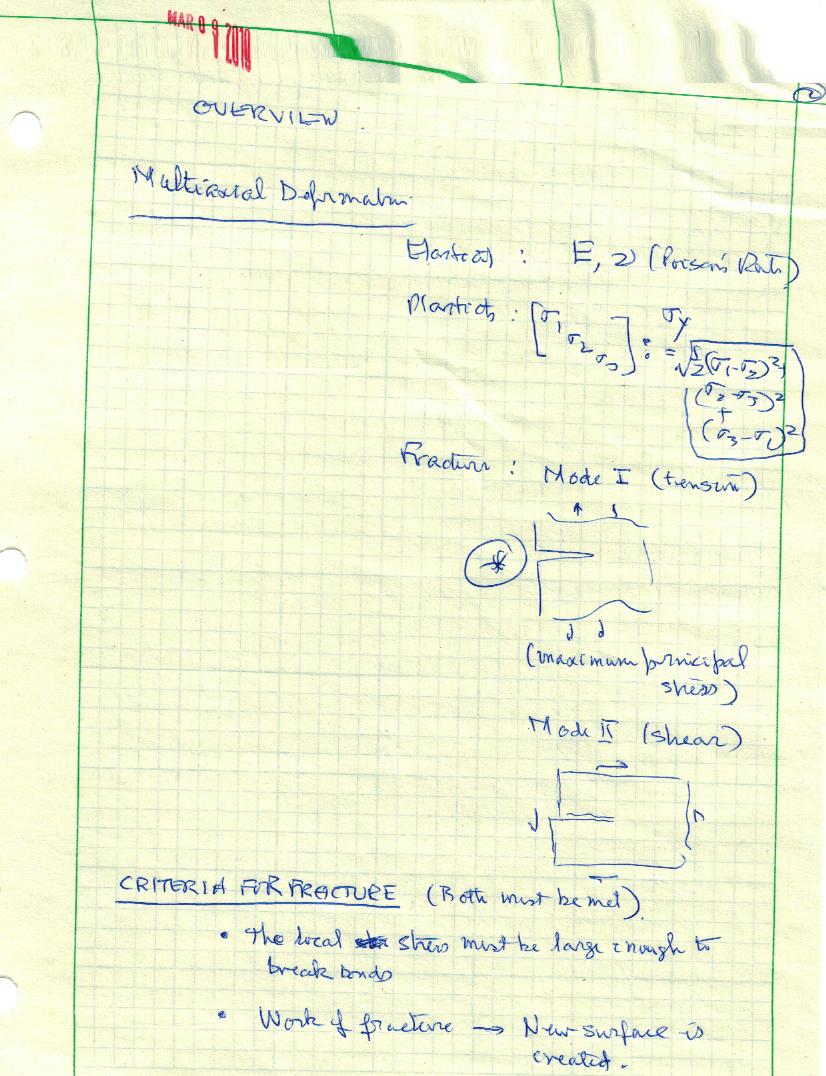 MAR 0 9 2010
2
OVERVIEW
Multiaxial Deformation
Elasticity : E, ν (Poisson's Ratio)
Plasticity : [σ1 σ2 σ3] : σy
= √ 1/2 (σ1-σ2)² +
(σ2-σ3)²
+
(σ3-σ1)²
Fracture : Mode I (tension)
*
(maximum principal
stress)
Mode II (shear)
CRITERIA FOR FRACTURE (Both must be met)
• The local stress must be large enough to
break bonds
• Work of fracture → New surface is
created.